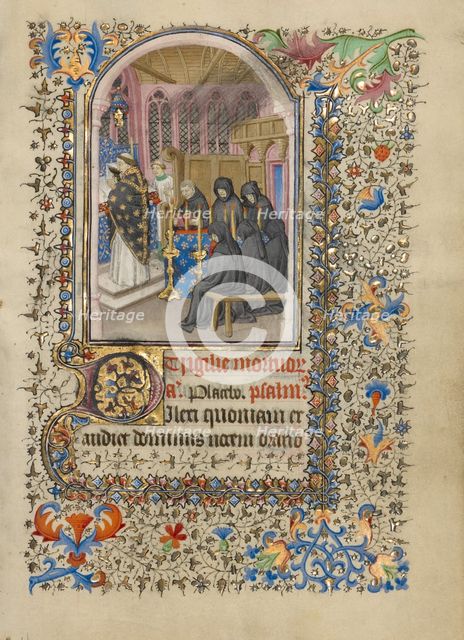 Vigilie mortuor
a. Placebo. psalm
Dilexi quoniam ex
audiet dominus vocem oratio
Heritage Heritage
Heritage Heritage
Heritage Heritage